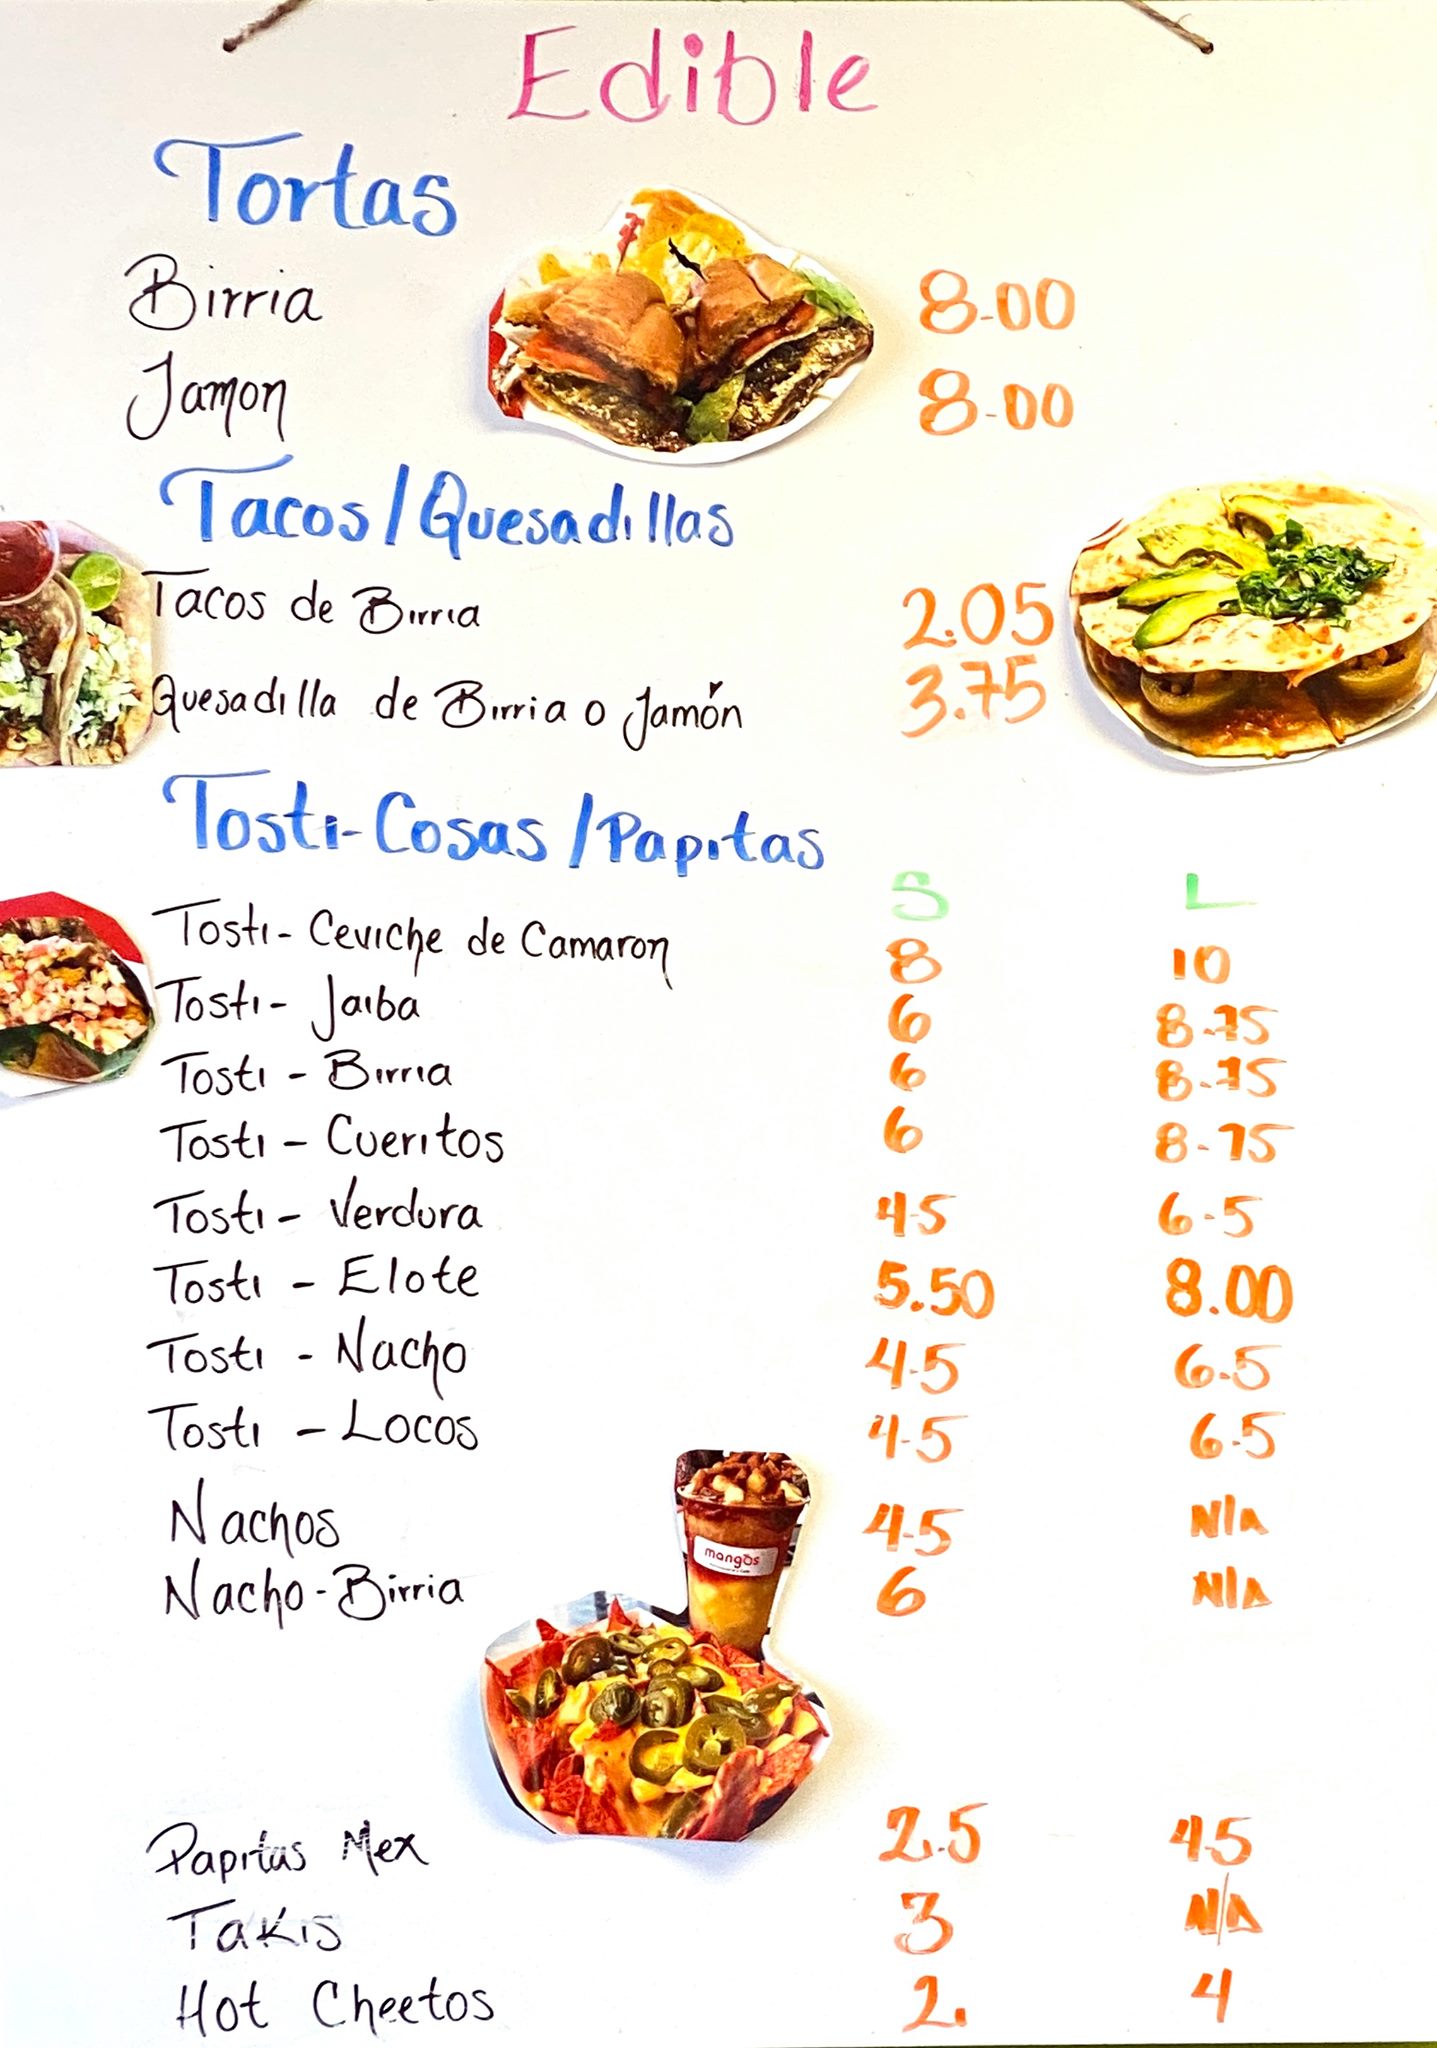 Edible
Tortas
Birria 8.00
Jamon 8.00
Tacos/Quesadillas
Tacos de Birria 2.05
Quesadilla de Birria o Jamón 3.75
Tosti-Cosas/Papitas
S L
Tosti-Ceviche de Camaron 8 10
Tosti-Jaiba 6 8.75
Tosti-Birria 6 8.75
Tosti-Cueritos 6 8.75
Tosti-Verdura 4.5 6.5
Tosti-Elote 5.50 8.00
Tosti-Nacho 4.5 6.5
Tosti-Locos 4.5 6.5
Nachos 4.5 N/A
mangos
Nacho-Birria 6 N/A
Papitas Mex 2.5 4.5
Takis 3 N/A
Hot Cheetos 2. 4